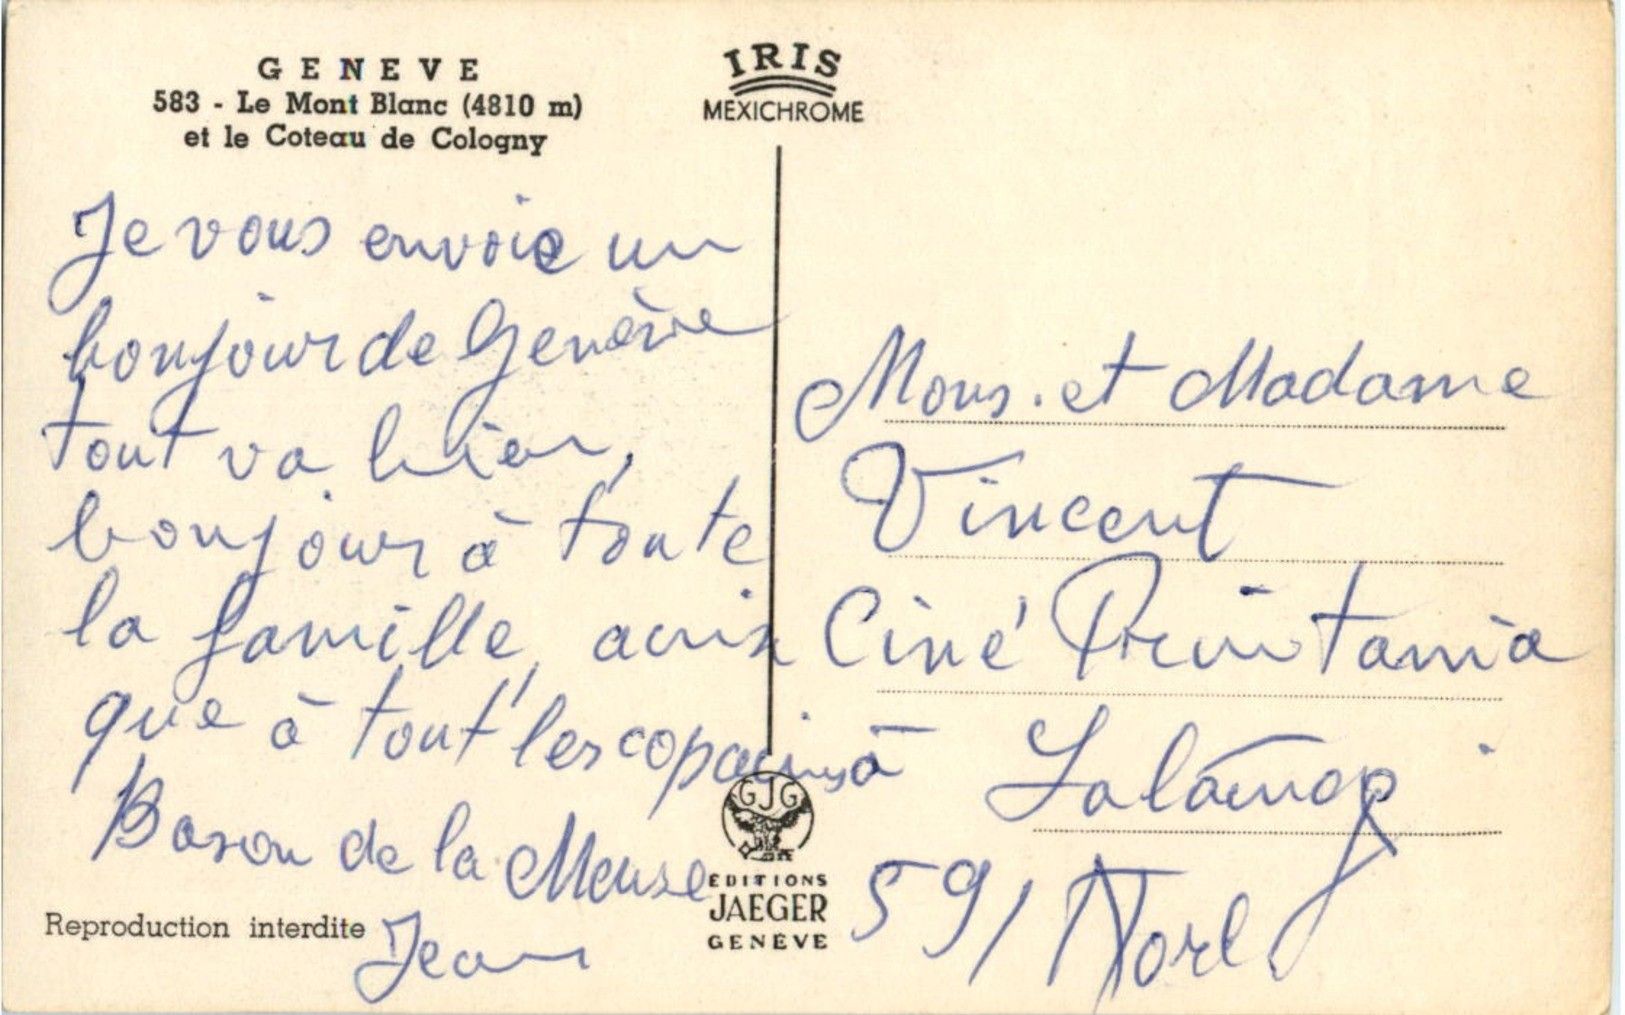 GENEVE
583 - Le Mont Blanc (4810 m)
et le Coteau de Cologny
IRIS
MEXICHROME
Je vous envoie un
bonjour de Genève
tout va bien,
bonjour à toute
la famille, ainsi
que à tout' les copains à
Bason de la Meuse
Jean
Reproduction interdite
GJG
EDITIONS
JAEGER
GENÈVE
Mons. et Madame
Vincent
Ciné Printania
59/ Nord